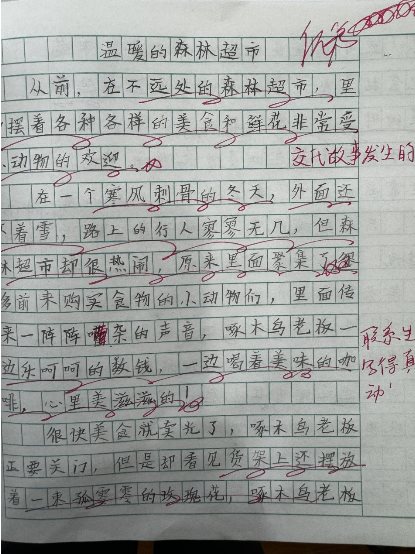 温暖的森林超市
从前，在不远处的森林超市，里
摆着各种各样的美食和鲜花非常受
小动物的欢迎。
交代故事发生的
在一个寒风刺骨的冬天，外面还
着雪，路上的行人寥寥无几，但森
林超市却很热闹，原来里面聚集了
多前来购买食物的小动物们，里面传
来一阵阵嘈杂的声音，啄木鸟老板一
边乐呵呵的数钱，一边喝着美味的咖
啡，心里美滋滋的！
联系生
写得真
动！
很快美食就卖光了，啄木鸟老板
正要关门，但是却看见货架上还摆放
着一束孤零零的玫瑰花，啄木鸟老板